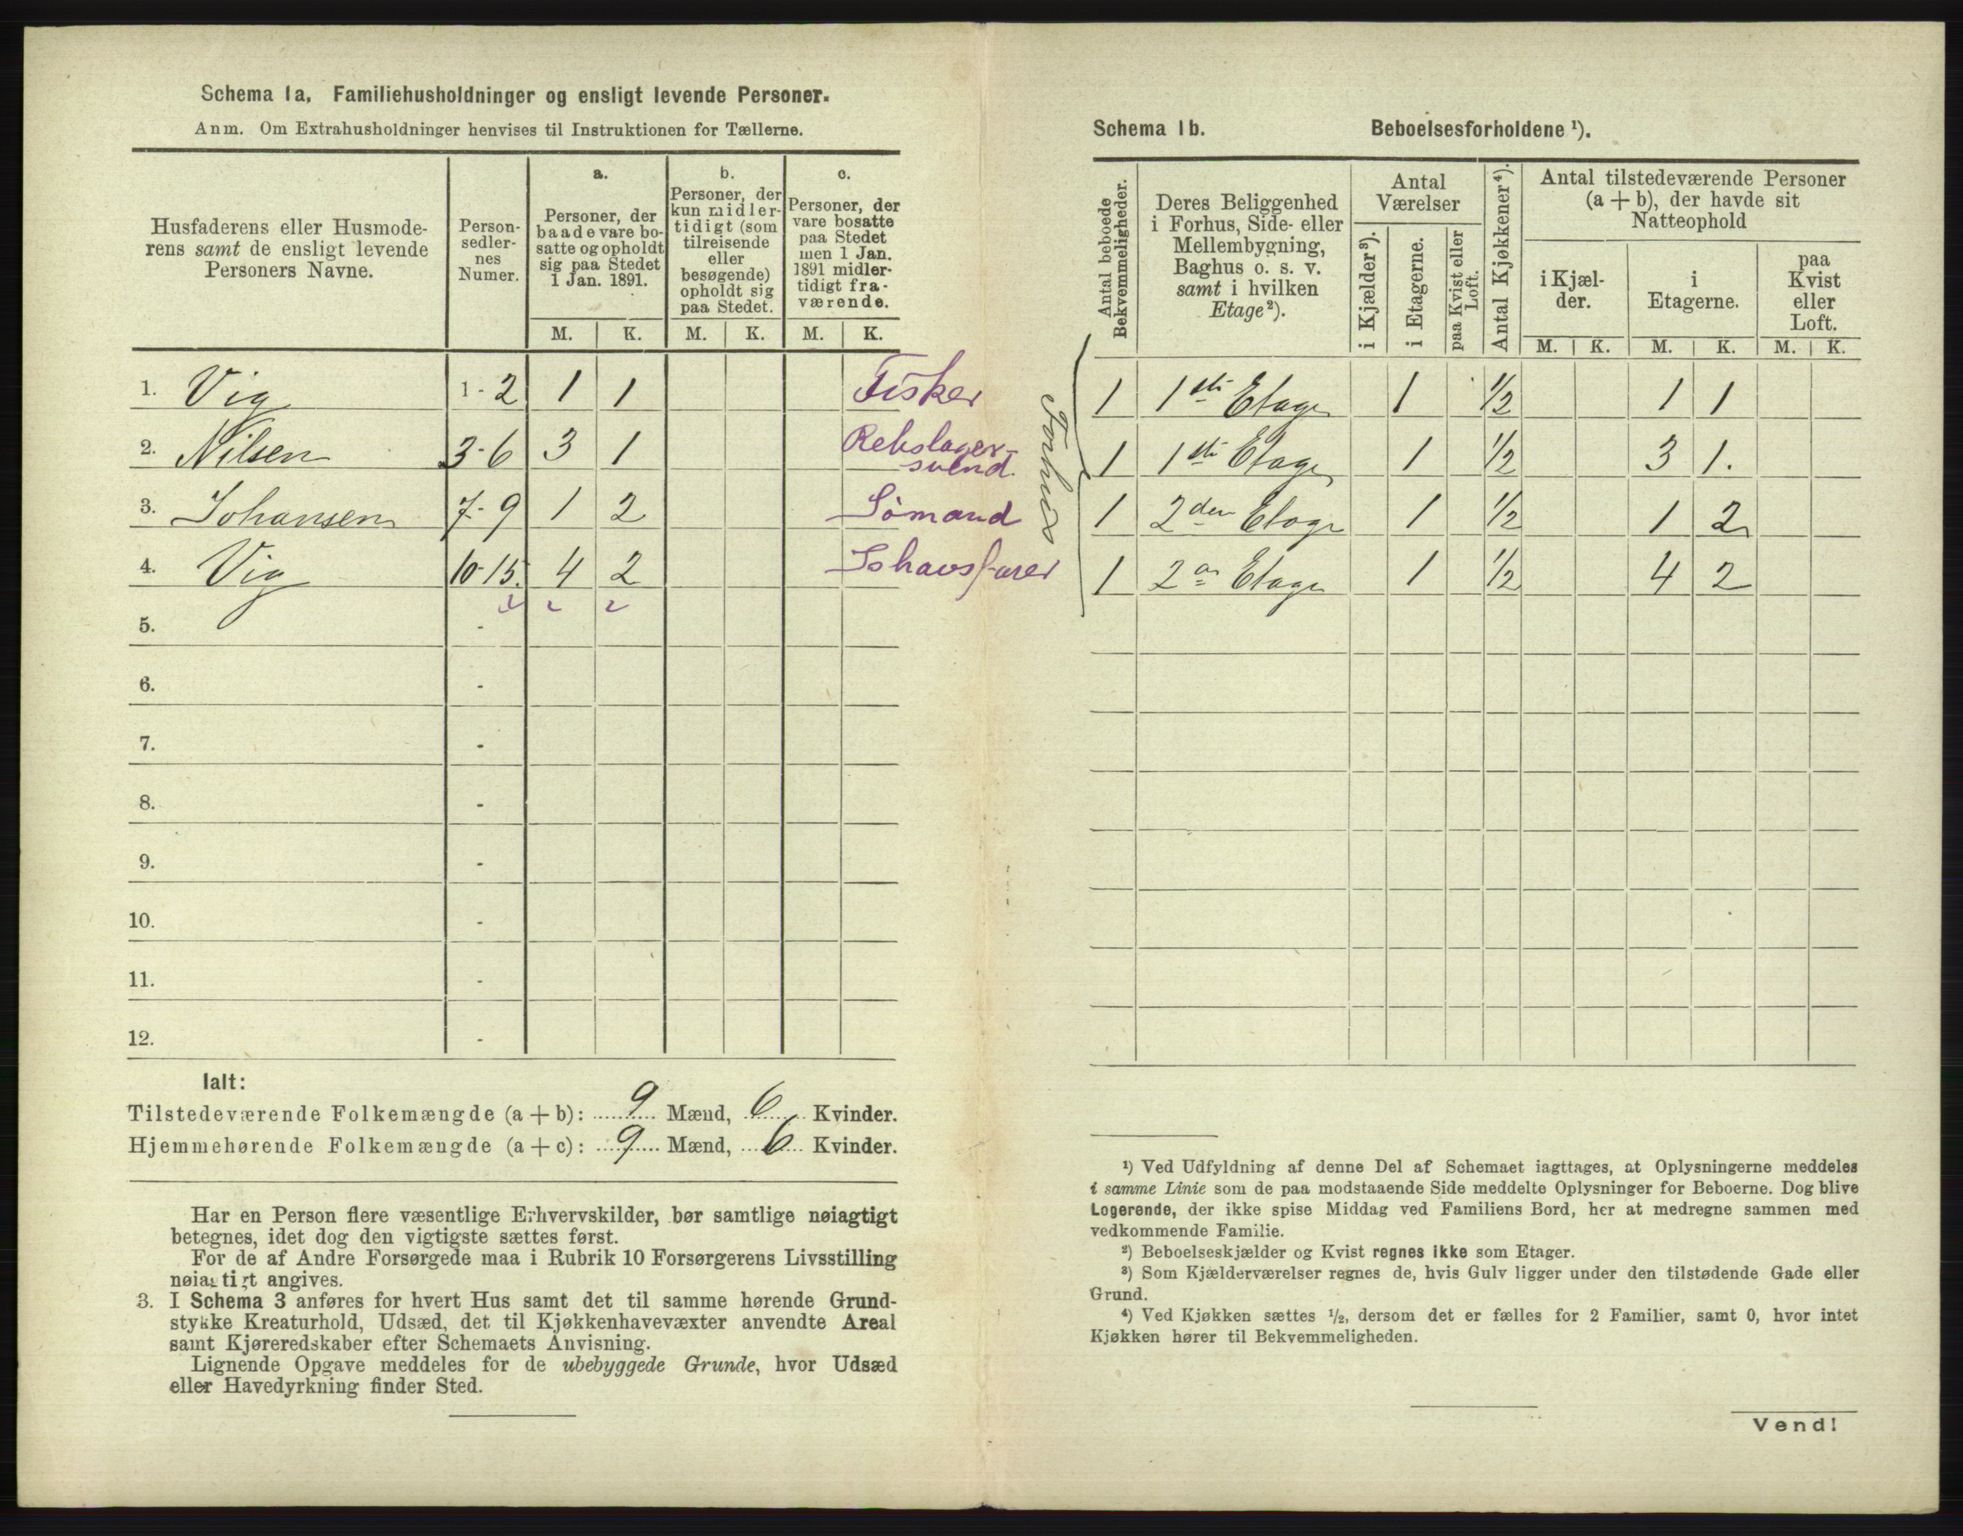 Schema 1a. Familiehusholdninger og ensligt levende Personer.
Anm. Om Extrahusholdninger henvises til Instruktionen for Tællerne.
Husfaderens eller Husmoderens samt de ensligt levende Personers Navne.
Personsedlernes Numer.
a. Personer, der baade vare bosatte og opholdt sig paa Stedet 1 Jan. 1891.
b. Personer, der kun midlertidigt (som tilreisende eller besøgende) opholdt sig paa Stedet.
c. Personer, der vare bosatte paa Stedet men 1 Jan. 1891 midlertidigt fraværende.
M. K. M. K. M. K.
1. Vig 1-2 1 1 Fisker
2. Nilsen 3-6 3 1 Rebslager-
svend.
3. Johansen 7-9 1 2 Sømand
4. Vig 10-15. 4 2 Ishavsfarer
5. -
6. -
7. -
8. -
9. -
10. -
11. -
12. -
Ialt:
Tilstedeværende Folkemængde (a + b): 9 Mænd, 6 Kvinder.
Hjemmehørende Folkemængde (a + c): 9 Mænd, 6 Kvinder.
Har en Person flere væsentlige Erhvervskilder, bør samtlige nøiagtigt
betegnes, idet dog den vigtigste sættes først.
For de af Andre Forsørgede maa i Rubrik 10 Forsørgerens Livsstilling
nøiagtigt angives.
3. I Schema 3 anføres for hvert Hus samt det til samme hørende Grund-
stykke Kreaturhold, Udsæd, det til Kjøkkenhavevæxter anvendte Areal
samt Kjøreredskaber efter Schemaets Anvisning.
Lignende Opgave meddeles for de ubebyggede Grunde, hvor Udsæd
eller Havedyrkning finder Sted.
Schema 1b. Beboelsesforholdene ¹).
Antal beboede Bekvemmeligheder.
Deres Beliggenhed i Forhus, Side- eller Mellembygning, Baghus o. s. v. samt i hvilken Etage ²).
Antal Værelser
i Kjælder ³).
i Etagerne.
paa Kvist eller Loft.
Antal Kjøkkener ⁴).
Antal tilstedeværende Personer (a + b), der havde sit Natteophold
i Kjælder.
i Etagerne.
paa Kvist eller Loft.
M. K. M. K. M. K.
Forhus
1 1ste Etage 1 1/2 1 1
1 1ste Etage 1 1/2 3 1.
1 2den Etage 1 1/2 1 2
1 2en Etage 1 1/2 4 2
¹) Ved Udfyldning af denne Del af Schemaet iagttages, at Oplysningerne meddeles
i samme Linie som de paa modstaaende Side meddelte Oplysninger for Beboerne. Dog blive
Logerende, der ikke spise Middag ved Familiens Bord, her at medregne sammen med
vedkommende Familie.
²) Beboelseskjælder og Kvist regnes ikke som Etager.
³) Som Kjælderværelser regnes de, hvis Gulv ligger under den tilstødende Gade eller
Grund.
⁴) Ved Kjøkken sættes ½, dersom det er fælles for 2 Familier, samt 0, hvor intet
Kjøkken hører til Bekvemmeligheden.
Vend!